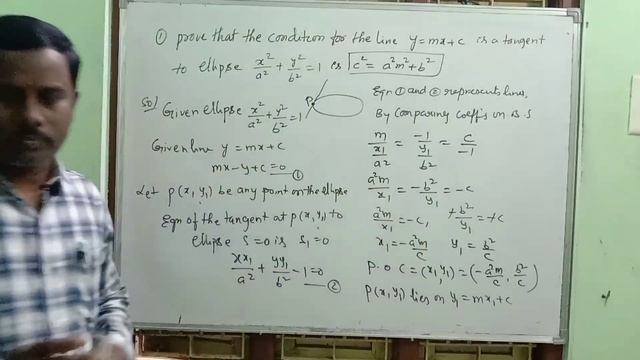 ① prove that the condition for the line y=mx+c is a tangent
to ellipse x²/a² + y²/b² = 1 is c² = a²m²+b²
Sol Given ellipse x²/a² + y²/b² = 1
P
Given line y = mx+c
mx-y+c=0 ①
Let P(x₁ y₁) be any point on the ellipse
Eqn of the tangent at P(x₁ y₁) to
ellipse S=0 is S₁=0
xx₁/a² + yy₁/b² - 1 = 0 ②
Eqn ① and ② represents line,
By Comparing coeff's on B.S
m/(x₁/a²) = -1/(y₁/b²) = c/-1
a²m/x₁ = -b²/y₁ = -c
a²m/x₁ = -c, +b²/y₁ = +c
x₁ = -a²m/c y₁ = b²/c
P.O C = (x₁, y₁) = (-a²m/c, b²/c)
P(x₁ y₁) lies on y₁ = mx₁+c